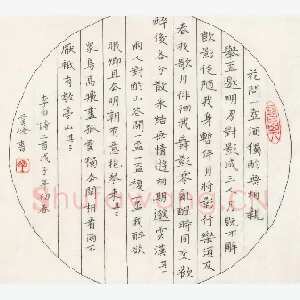 花間一壺酒獨酌無相親
舉盃邀明月對影成三人月既不解
飲影徒隨我身暫伴月將影行樂須及
春我歌月徘徊我舞影零亂醒時同交歡
醉後各分散永結無情遊相期邈雲漢其一
兩人對酌山花開一盃一盃復一盃我醉欲
眠卿且去明朝有意抱琴來其二
衆鳥高飛盡孤雲獨去閒相看兩不
厭祗有敬亭山其三
李白詩三首戊子年初春
書